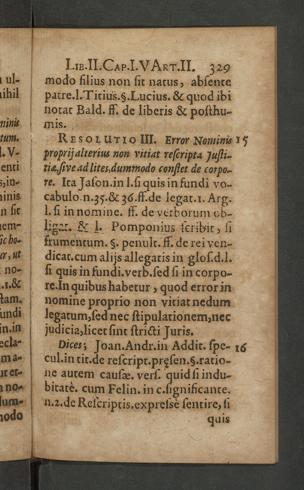 Lib. II. Cap. I. V Art. II. 329
modo filius non sit natus, absente
patre. l. Titius. §. Lucius. & quod ibi
notat Bald. ff. de liberis & posthu-
mis.
Resolutio III. Error Nominis 15
proprij alterius non vitiat rescripta Justi-
tiæ, sive ad lites, dummodo constet de corpo-
re. Ita Jason. in l. si quis in fundi vo-
cabulo n. 35. & 36. ff. de legat. 1. Arg.
l. si in nomine. ff. de verborum ob-
ligat. & l. Pomponius scribit, si
frumentum. §. penult. ff. de rei ven-
dicat. cum alijs allegatis in glos. d. l.
si quis in fundi. verb. sed si in corpo-
re. In quibus habetur, quod error in
nomine proprio non vitiat nedum
legatum, sed nec stipulationem, nec
judicia, licet sint stricti Juris.
Dices; Joan. Andr. in Addit. spe- 16
cul. in tit. de rescript. præsen. §. ratio-
ne autem causæ. vers. quid si indu-
bitatè. cum Felin. in c. significante.
n. 2. de Rescriptis. expressè sentire, si
quis